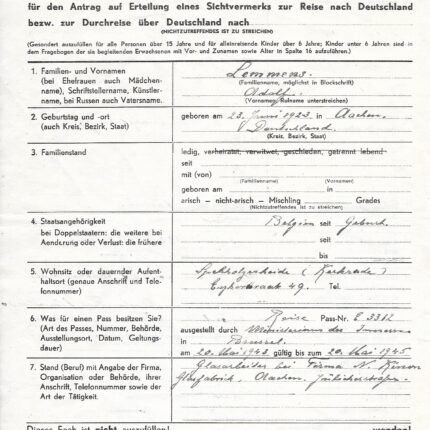 für den Antrag auf Erteilung eines Sichtvermerks zur Reise nach Deutschland
bezw. zur Durchreise über Deutschland nach
(NICHTZUTREFFENDES IST ZU STREICHEN)
(Gesondert auszufüllen für alle Personen über 15 Jahre und für alleinreisende Kinder über 6 Jahre; Kinder unter 6 Jahren sind in
dem Fragebogen der sie begleitenden Erwachsenen mit Vor- und Zunamen sowie Alter in Spalte 16 aufzuführen.)
1. Familien- und Vornamen
(bei Ehefrauen auch Mädchen-
name), Schriftstellername, Künstler-
name, bei Russen auch Vatersname.
Lemmens.
(Familienname, möglichst in Blockschrift)
Adolf.
(Vorname, Rufname unterstreichen)
2. Geburtstag und -ort
(auch Kreis, Bezirk, Staat)
geboren am 23. Juni 1923 in Aachen.
Deutschland.
(Kreis, Bezirk, Staat)
3. Familienstand
ledig, verheiratet, verwitwet, geschieden, getrennt lebend
seit
mit (von)
(Familienname) (Vornamen)
geboren am in
arisch – nicht-arisch – Mischling Grades
(Nichtzutreffendes ist zu streichen)
4. Staatsangehörigkeit
bei Doppelstaatern: die weitere bei
Aenderung oder Verlust: die frühere
Belgien seit Geburt.
seit
bis
5. Wohnsitz oder dauernder Aufent-
haltsort (genaue Anschrift und Tele-
fonnummer)
Spekholzerheide (Kerkrade)
49. Tel.
6. Was für einen Pass besitzen Sie?
(Art des Passes, Nummer, Behörde,
Ausstellungsort, Datum, Geltungs-
dauer)
Reise Pass-Nr. E 3312
ausgestellt durch Ministerium des Inneren
in Brussel.
am 20. Mai 1943 gültig bis zum 20. Mai 1945
7. Stand (Beruf) mit Angabe der Firma,
Organisation oder Behörde, ihrer
Anschrift, Telefonnummer sowie der
Art der Tätigkeit.
Glasarbeiter bei Firma N.
Glasfabrik, Aachen. Jülicherstraße.
Dieses Fach ist nicht auszufüllen!
wenden!